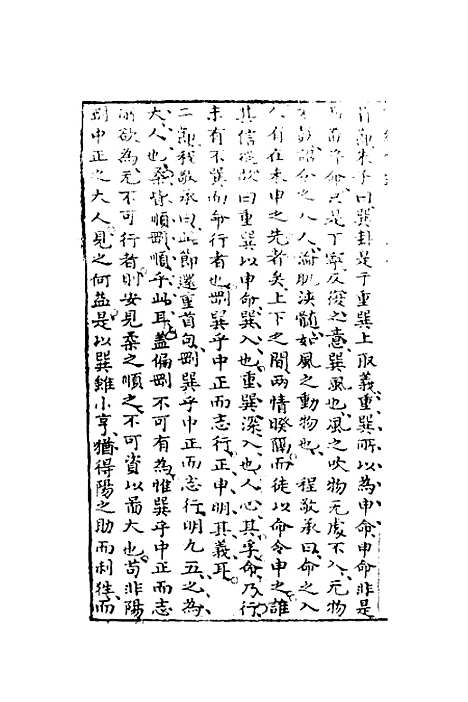 首節朱子曰巽卦是于重巽上取義重巽所以為申命申命非是
兩番降命只是丁寧反復之意巽風也風之吹物无處不入无物
不鼓詔令之入人淪肌浹髓如風之動物也　程敬承曰命之入
人有在未申之先者矣上下之間兩情暌隔而徒以命令申之誰
其信從故曰重巽以申命巽入也重巽深入也人心其孚命乃行
未有不巽而命行者也剛巽乎中正而志行正申明其義耳
二節程敬承曰此節還重首句剛巽乎中正而志行明九五之為
大人也柔皆順剛順乎此耳蓋偏剛不可有為惟巽乎中正而志
所欲為无不可行者則安見柔之順之不可資以為大也苟非陽
剛中正之大人見之何益是以巽雖小亨猶得陽之助而利往而